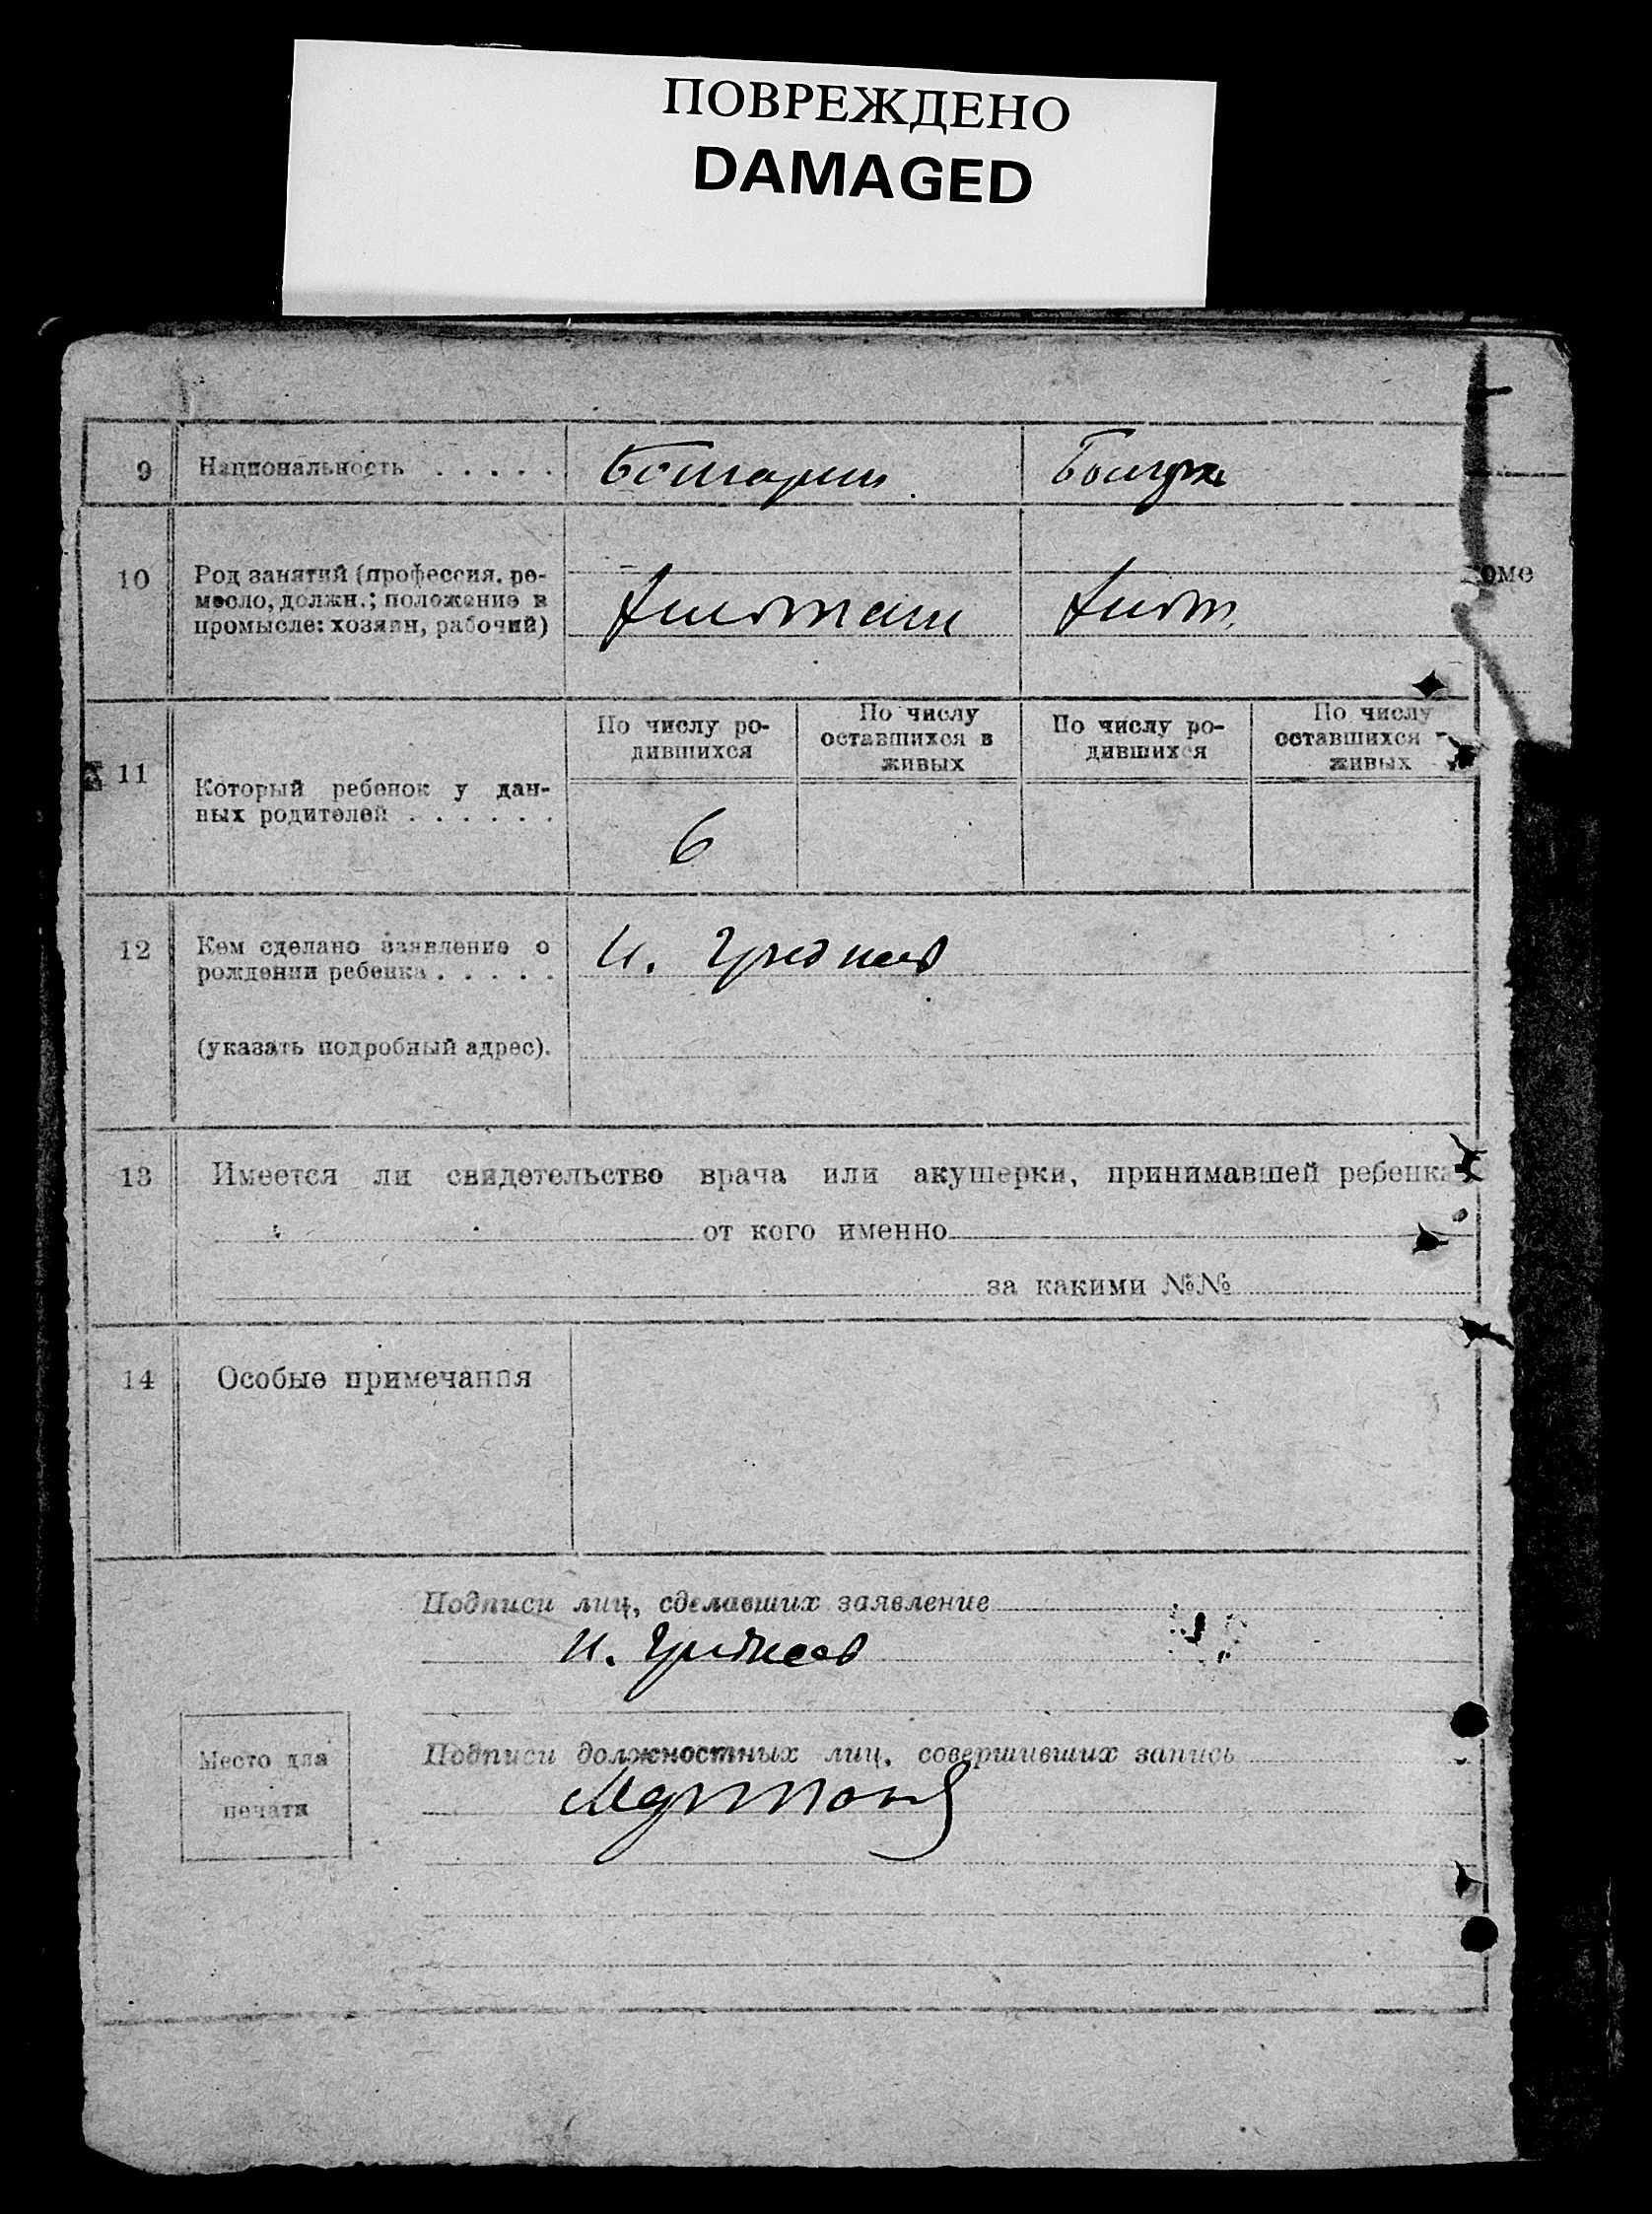 ПОВРЕЖДЕНО
DAMAGED
9 Национальность . . . . . Болгарин Болгарк
10 Род занятий (профессия, ре-
месло, должн.; положение в
промысле: хозяин, рабочий)
оме
По числу ро-
дившихся
По числу
оставшихся в
живых
По числу ро-
дившихся
По числу
оставшихся
живых
11 Который ребенок у дан-
ных родителей . . . . . .
6
12 Кем сделано заявление о
рождении ребенка . . . . .
И.
(указать подробный адрес).
13 Имеется ли свидетельство врача или акушерки, принимавшей ребенка
от кого именно
за какими №№
14 Особые примечания
Подписи лиц, сделавших заявление
И.
Подписи должностных лиц, совершивших запись
Место для
печати